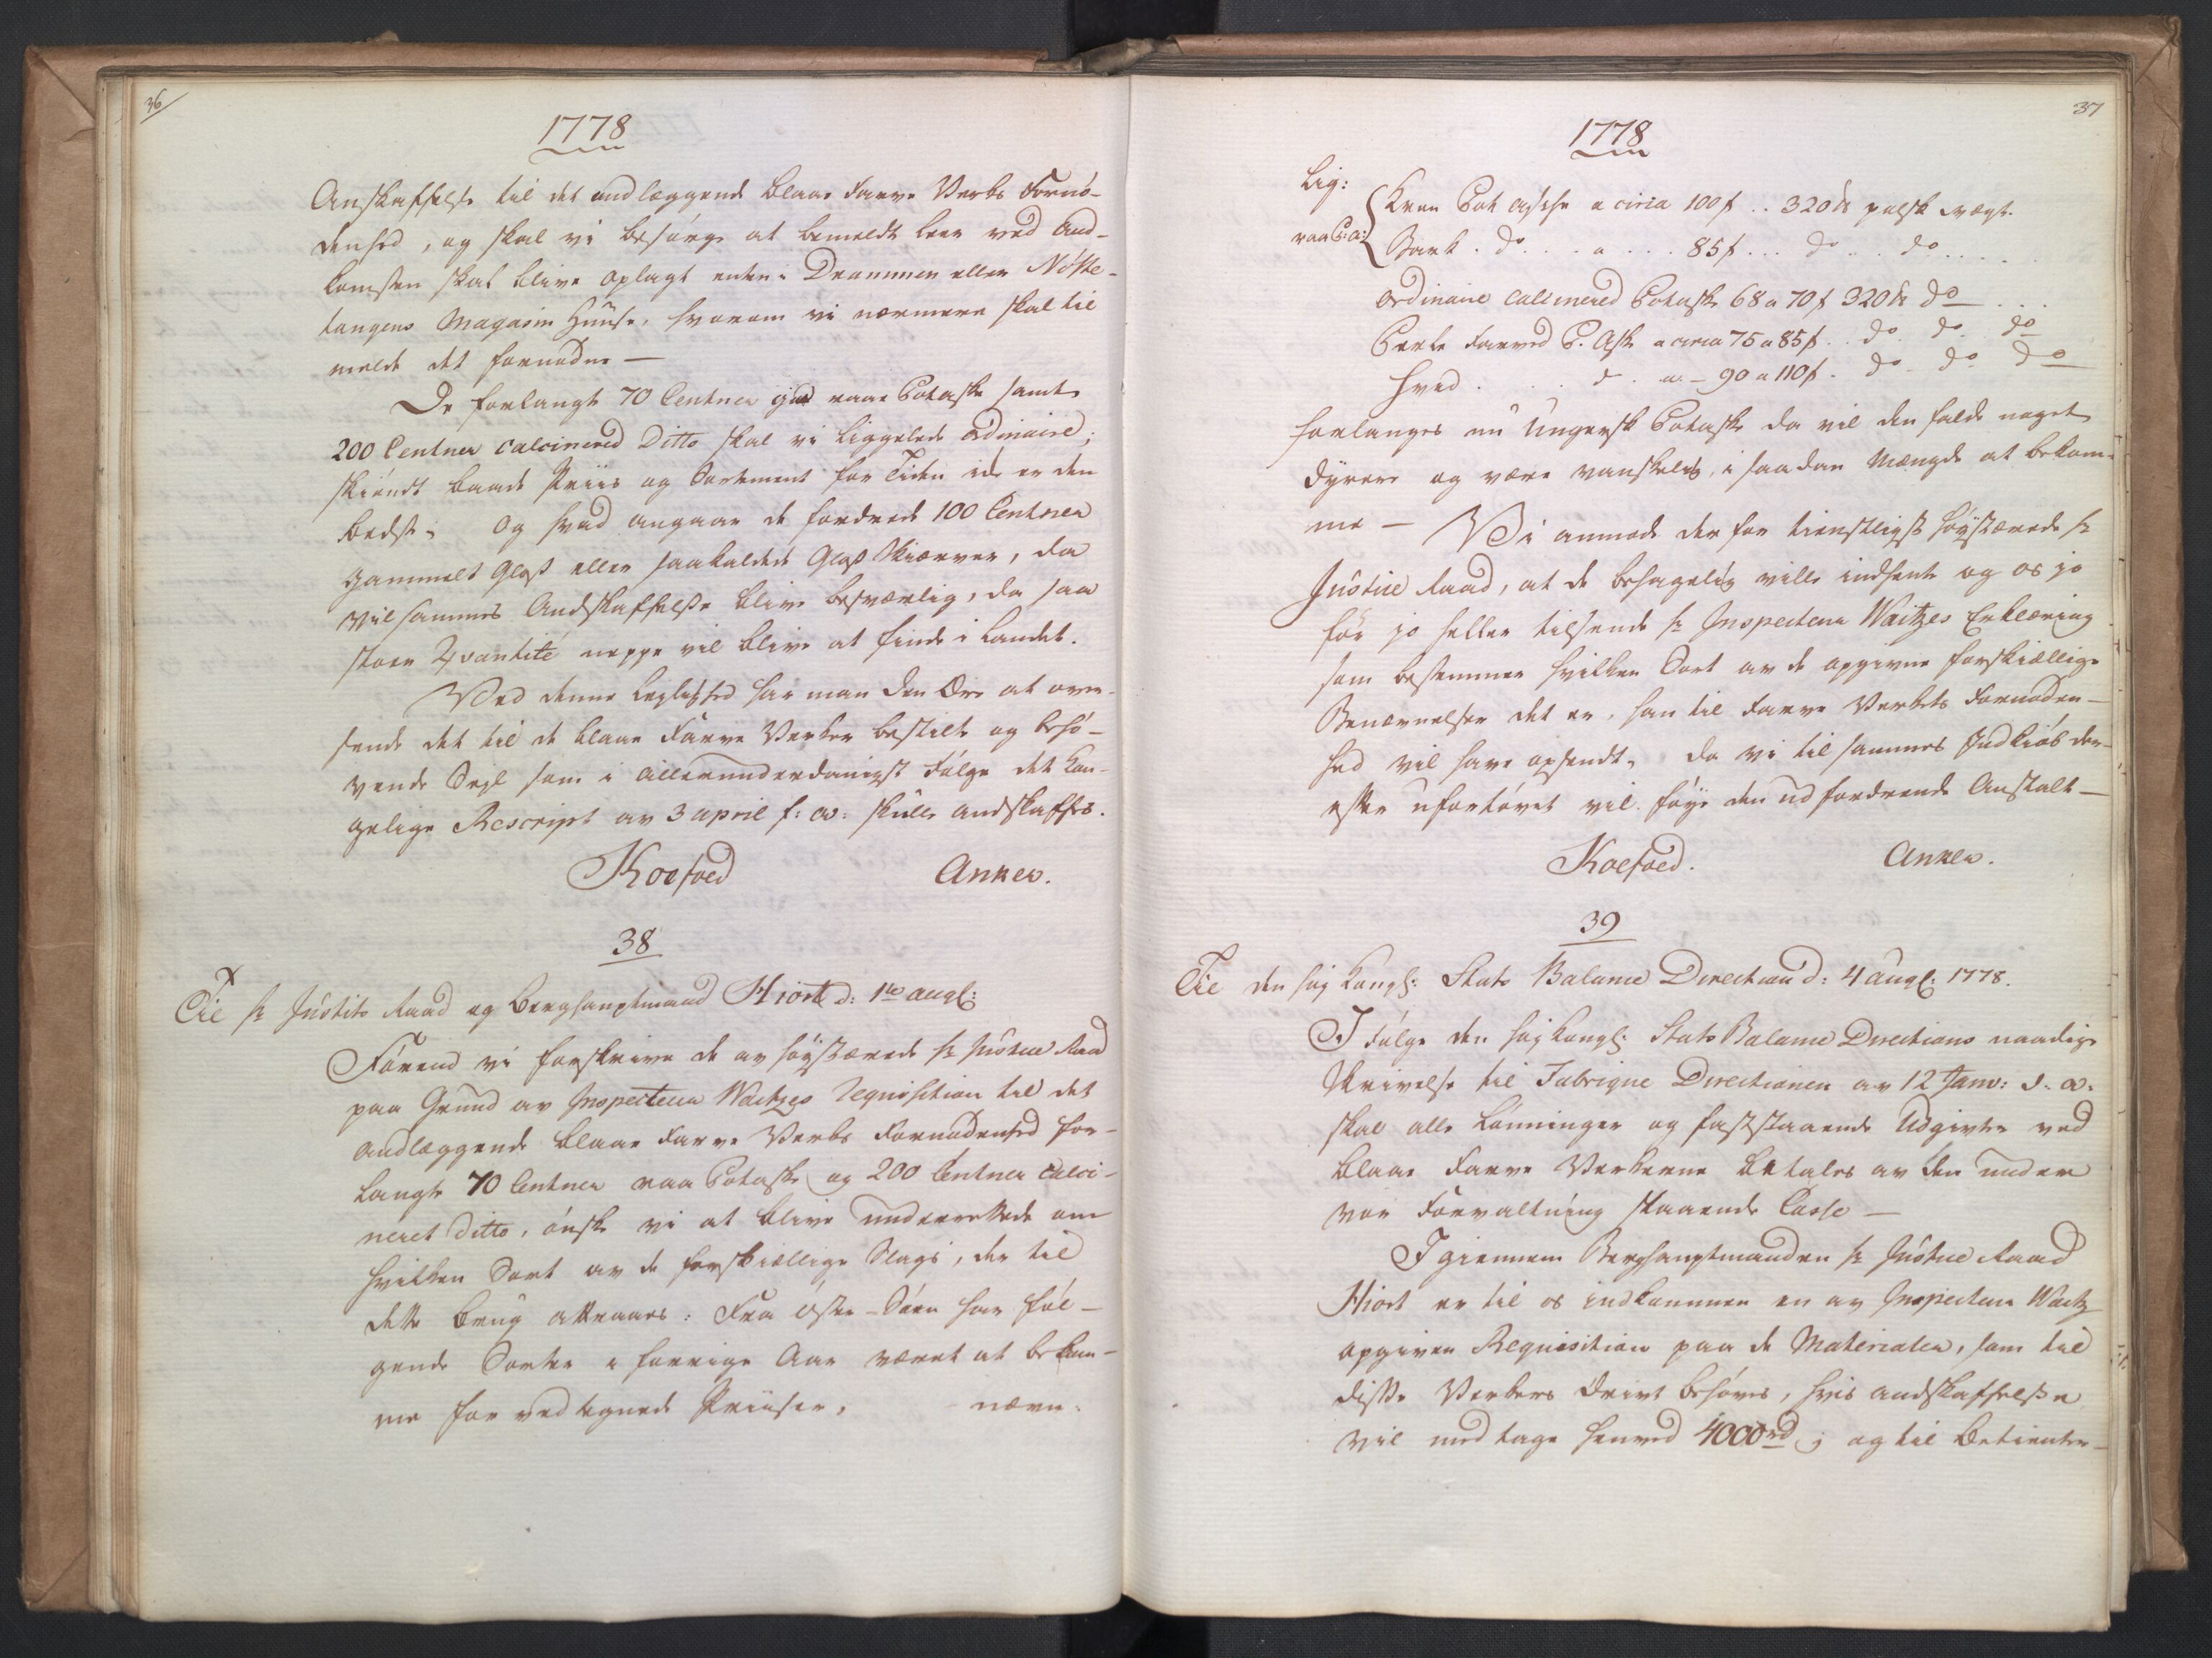 36
1778
Anskaffelse til det andlæggende Blaae Farve Verks Fornö-
denhed, og skal vi besörge at bemeldte leer ved And-
komsten skal blive oplagt enten i Drammen eller Nöste-
tangens Magasin Huuse, hvorom vi nærmere skal til
melde det fornødne —
De forlangte 70 Centner god raae Potaske samt
200 Centner calcinered Ditto skal vi liggelede ordinaire;
skiöndt baade Priis og Sortement for Tiden ide er den
bedste, Og hvad angaar de fordrede 100 Centner
gammelt Glas eller saakaldede Glas Skierver, da
vil sammes Andskaffelse blive besværlig, da saa
stoer Qvantité neppe vil blive at finde i Landet.
Ved denne Leylighed har man den Ære at over-
sende det til de blaae Farve Verker bestilte og behö-
vende Segl som i allerunderdanigst Fölge det Kon-
gelige Rescript av 3 april f: a: skulle andskaffes.
Koefoed Anker.
38
Til hr Justits Raad og Berghauptmand Hiort d: 1te augl:
Förend vi forskrive de av höystærede hr Justice Raad
paa Grund av Inspecteur Waitzes Requisition til det
andlæggende blaae Farve Verks Fornødenhed for-
langte 70 Centner raa Potaske og 200 Centner calci-
neret Ditto, önske vi at blive underrettede om
hvilken Sort av de forskiællige Slags, der til
dette Brug attraaes: Fra Öster-Söen har föl-
gende Sorter i forrige Aar været at bekom-
me for ved tegnede Priiser, nævn-
37
1778
lig:
raa P: a:
Kron Pot aske a circa 100f .. 320 ℔ polsk vægt.
Bark . do . . . a . . . 85f ... do .. do ....
ordinaire calcinered Potaske 68 a 70f 320 ℔ do ...
Perle Farved P. Aske a circa 75 a 85f .. do do do
Hvid . . . d . a. – 90 a 110f . do do do
forlanges nu Ungersk Potaske da vil den falde noget
dyrere og være vanskelig, i saadan Mængde at bekom-
me — Vi anmode derfor tienstligst höystærede hr
Justice Raad, at de behagelig ville indhente og os jo
för jo heller tilsende hr Inspecteur Waitzes Erklæring
som bestemmer hvilken Sort av de opgivne forskiællige
Benævnelser det er, han til Farve Verkets Fornøden-
hed vil have opsendt, da vi til sammes Indkiöb der-
efter ufortövet vil föye den udfordrende Anstalt —
Koefoed. Anker.
39
Til den höy Kongl: Stats Balance Direction d: 4 augl: 1778.
I Fölge den höy Kongl: Stats Balance Directions naadige
Skrivelse til Fabrique Directionen av 12 Janv: d: a:
skal alle Lönninger og faststaaende Udgivter ved
Blaae Farve Verkerne betales av den under
vor Forvaltning staaende Casse —
Igiennem Berghauptmanden hr Justice Raad
Hiort er til os indkommen en av Inspecteur Waitz
opgiven Requisition paa de Materialer, som til
disse Verkers Drivt behöves, hvis andskaffelse
vil med tage henved 4000 rd; og til Betienter-